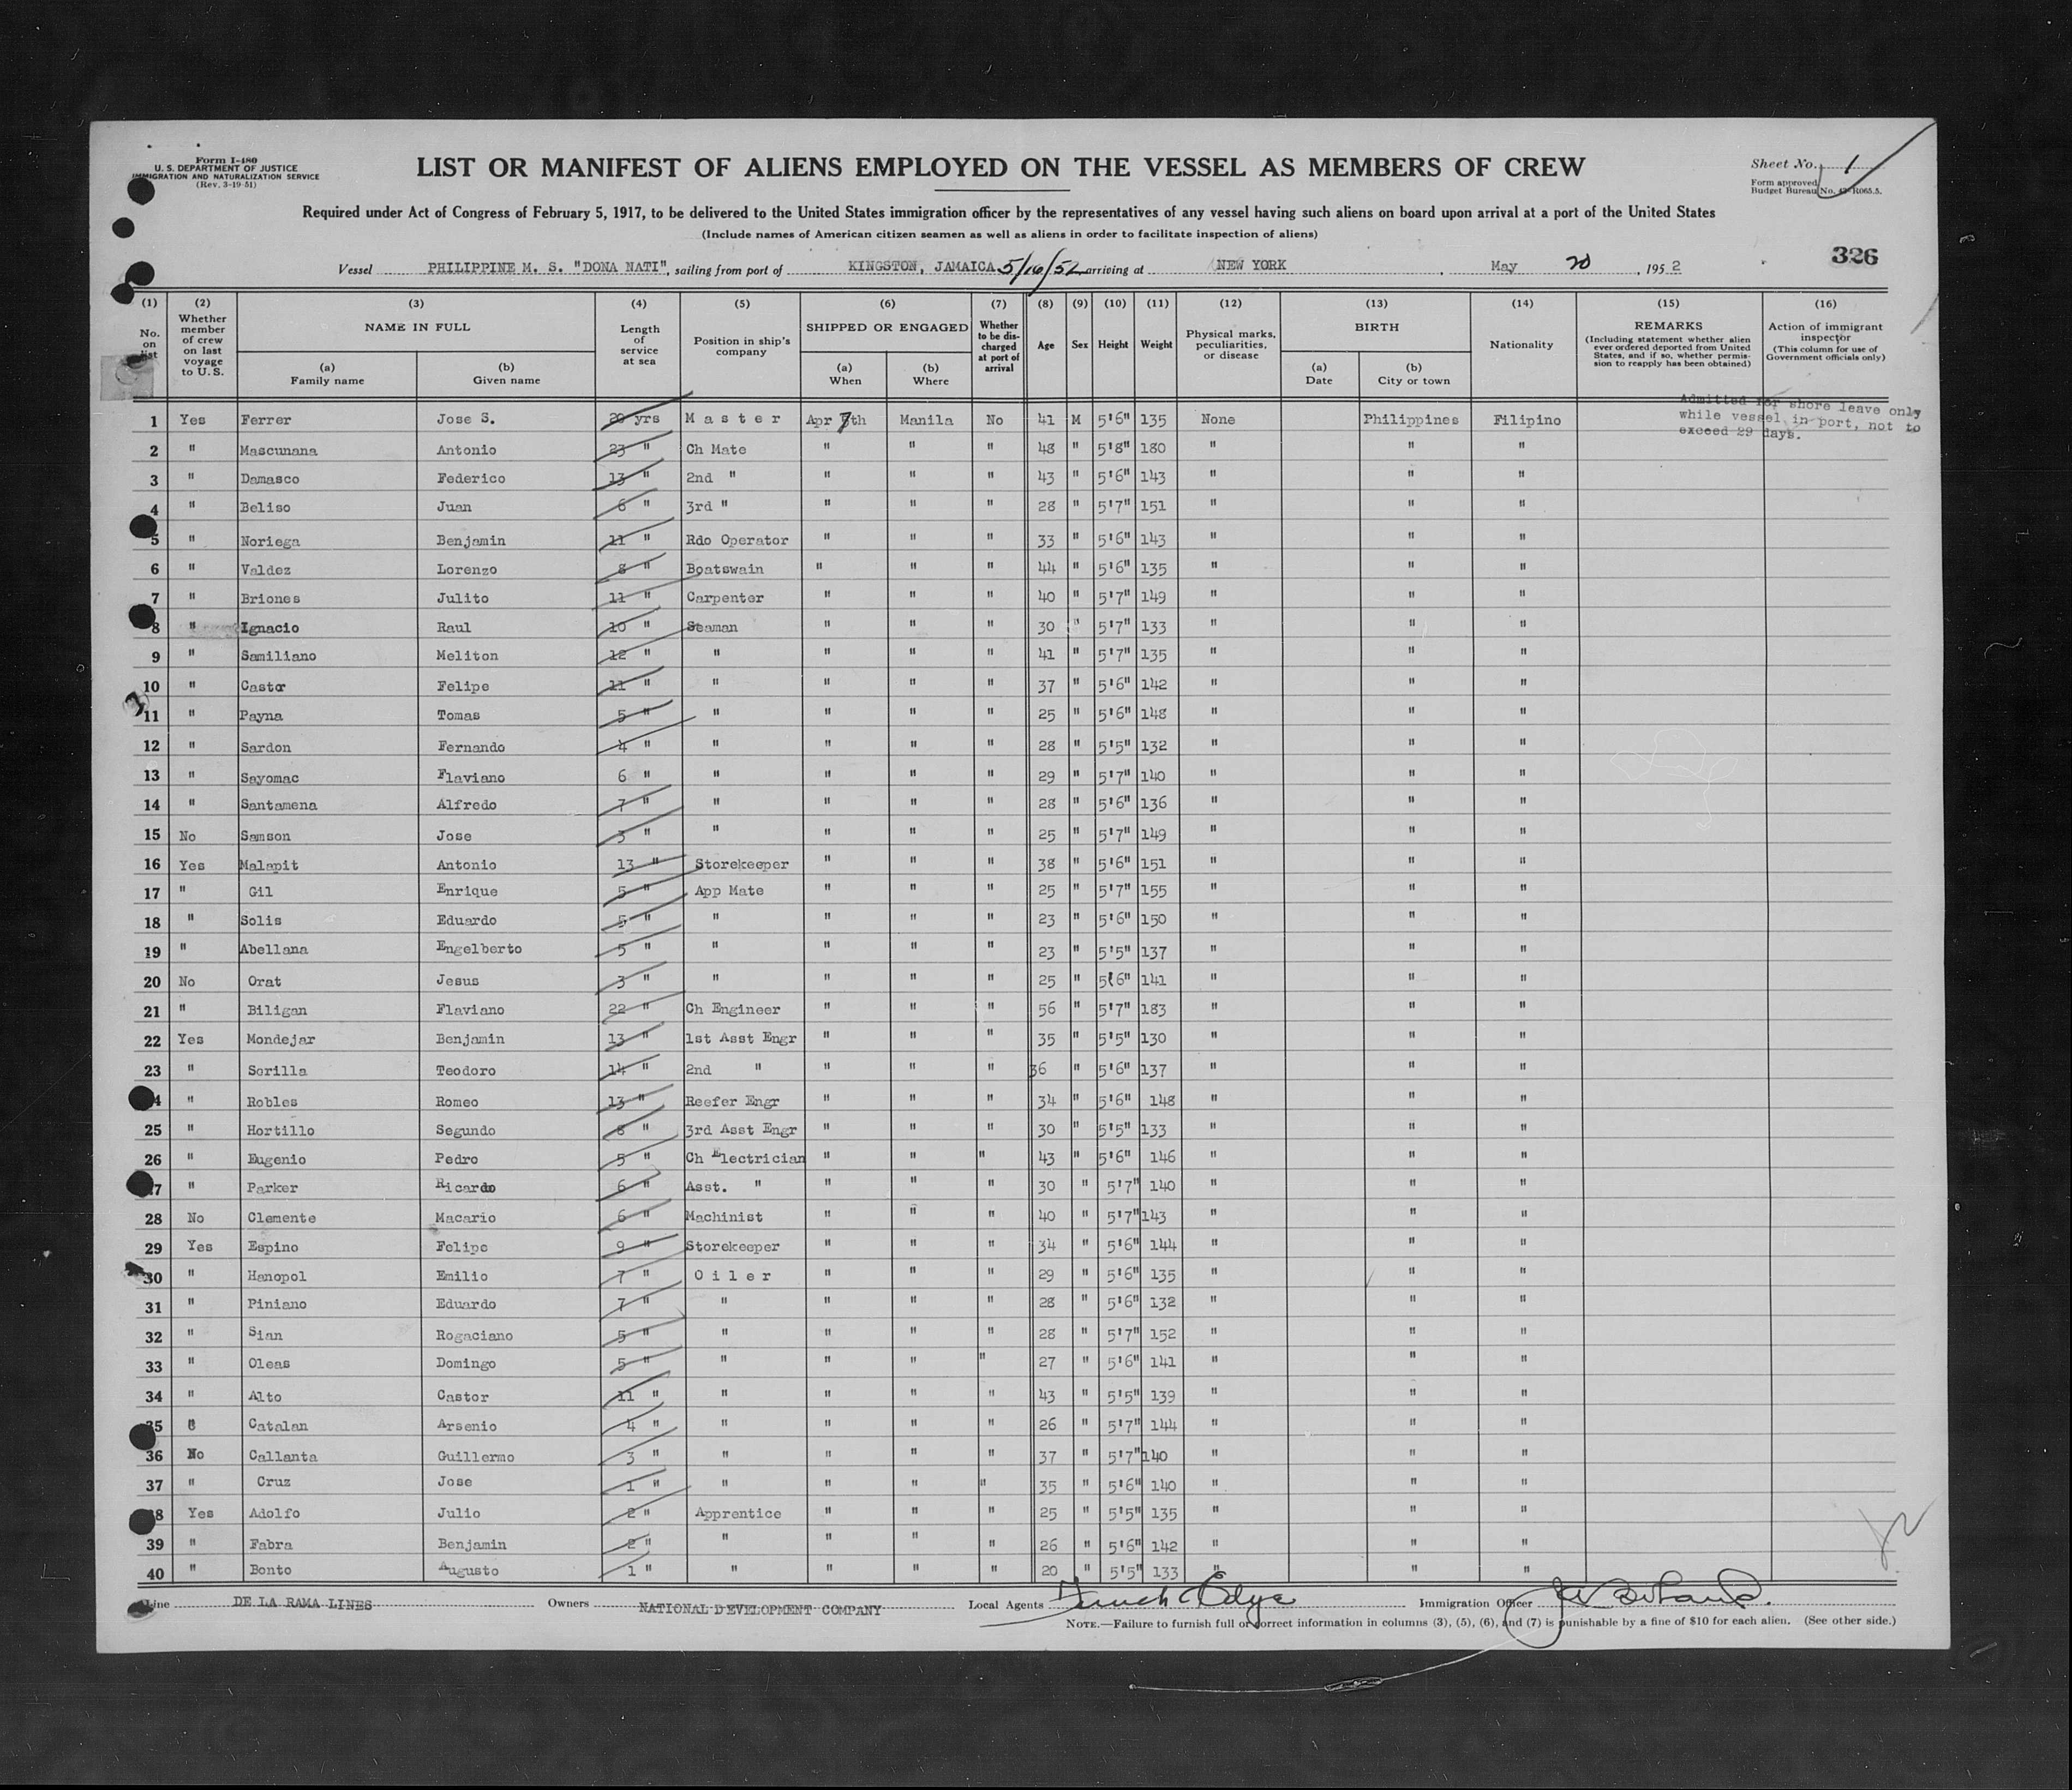 Form I-480
U. S. DEPARTMENT OF JUSTICE
IMMIGRATION AND NATURALIZATION SERVICE
(Rev. 3-19-51)
LIST OR MANIFEST OF ALIENS EMPLOYED ON THE VESSEL AS MEMBERS OF CREW
Sheet No. 1
Form approved
Budget Bureau No. 43-R065.5.
Required under Act of Congress of February 5, 1917, to be delivered to the United States immigration officer by the representatives of any vessel having such aliens on board upon arrival at a port of the United States
(Include names of American citizen seamen as well as aliens in order to facilitate inspection of aliens)
326
Vessel PHILIPPINE M. S. "DONA NATI", sailing from port of KINGSTON, JAMAICA 5/16/52 arriving at NEW YORK, May 20, 1952
(1) (2) (3) (4) (5) (6) (7) (8) (9) (10) (11) (12) (13) (14) (15) (16)
No. on list
Whether member of crew on last voyage to U. S.
NAME IN FULL
(a) Family name
(b) Given name
Length of service at sea
Position in ship's company
SHIPPED OR ENGAGED
(a) When
(b) Where
Whether to be discharged at port of arrival
Age
Sex
Height
Weight
Physical marks, peculiarities, or disease
BIRTH
(a) Date
(b) City or town
Nationality
REMARKS
(Including statement whether alien ever ordered deported from United States, and if so, whether permission to reapply has been obtained)
Action of immigrant inspector
(This column for use of Government officials only)
Admitted for shore leave only
while vessel in port, not to
exceed 29 days.
1 Yes Ferrer Jose S. 20 yrs Master Apr 7th Manila No 41 M 5'6" 135 None Philippines Filipino
2 " Mascunana Antonio 23 " Ch Mate " " " 48 " 5'8" 180 " " "
3 " Damasco Federico 13 " 2nd " " " " 43 " 5'6" 143 " " "
4 " Beliso Juan 6 " 3rd " " " " 28 " 5'7" 151 " " "
5 " Noriega Benjamin 11 " Rdo Operator " " " 33 " 5'6" 143 " " "
6 " Valdez Lorenzo 8 " Boatswain " " " 44 " 5'6" 135 " " "
7 " Briones Julito 11 " Carpenter " " " 40 " 5'7" 149 " " "
8 " Ignacio Raul 10 " Seaman " " " 30 " 5'7" 133 " " "
9 " Samiliano Meliton 12 " " " " " 41 " 5'7" 135 " " "
10 " Castor Felipe 11 " " " " " 37 " 5'6" 142 " " "
11 " Payna Tomas 5 " " " " " 25 " 5'6" 148 " " "
12 " Sardon Fernando 4 " " " " " 28 " 5'5" 132 " " "
13 " Sayomac Flaviano 6 " " " " " 29 " 5'7" 140 " " "
14 " Santamena Alfredo 7 " " " " " 28 " 5'6" 136 " " "
15 No Samson Jose 3 " " " " " 25 " 5'7" 149 " " "
16 Yes Malapit Antonio 13 " Storekeeper " " " 38 " 5'6" 151 " " "
17 " Gil Enrique 5 " App Mate " " " 25 " 5'7" 155 " " "
18 " Solis Eduardo 5 " " " " " 23 " 5'6" 150 " " "
19 " Abellana Engelberto 5 " " " " " 23 " 5'5" 137 " " "
20 No Orat Jesus 3 " " " " " 25 " 5'6" 141 " " "
21 " Biligan Flaviano 22 " Ch Engineer " " " 56 " 5'7" 183 " " "
22 Yes Mondejar Benjamin 13 " 1st Asst Engr " " " 35 " 5'5" 130 " " "
23 " Sorilla Teodoro 14 " 2nd " " " " 36 " 5'6" 137 " " "
24 " Robles Romeo 13 " Reefer Engr " " " 34 " 5'6" 148 " " "
25 " Hortillo Segundo 8 " 3rd Asst Engr " " " 30 " 5'5" 133 " " "
26 " Eugenio Pedro 5 " Ch Electrician " " " 43 " 5'6" 146 " " "
27 " Parker Ricardo 6 " Asst. " " " " 30 " 5'7" 140 " " "
28 No Clemente Macario 6 " Machinist " " " 40 " 5'7" 143 " " "
29 Yes Espino Felipe 9 " Storekeeper " " " 34 " 5'6" 144 " " "
30 " Hanopol Emilio 7 " Oiler " " " 29 " 5'6" 135 " " "
31 " Piniano Eduardo 7 " " " " " 28 " 5'6" 132 " " "
32 " Sian Rogaciano 5 " " " " " 28 " 5'7" 152 " " "
33 " Oleas Domingo 5 " " " " " 27 " 5'6" 141 " " "
34 " Alto Castor 11 " " " " " 43 " 5'5" 139 " " "
35 " Catalan Arsenio 4 " " " " " 26 " 5'7" 144 " " "
36 No Callanta Guillermo 3 " " " " " 37 " 5'7" 140 " " "
37 " Cruz Jose 1 " " " " " 35 " 5'6" 140 " " "
38 Yes Adolfo Julio 2 " Apprentice " " " 25 " 5'5" 135 " " "
39 " Fabra Benjamin 2 " " " " " 26 " 5'6" 142 " " "
40 " Bonto Augusto 1 " " " " " 20 " 5'5" 133 " " "
Line DE LA RAMA LINES Owners NATIONAL DEVELOPMENT COMPANY Local Agents Immigration Officer
NOTE.—Failure to furnish full or correct information in columns (3), (5), (6), and (7) is punishable by a fine of $10 for each alien. (See other side.)